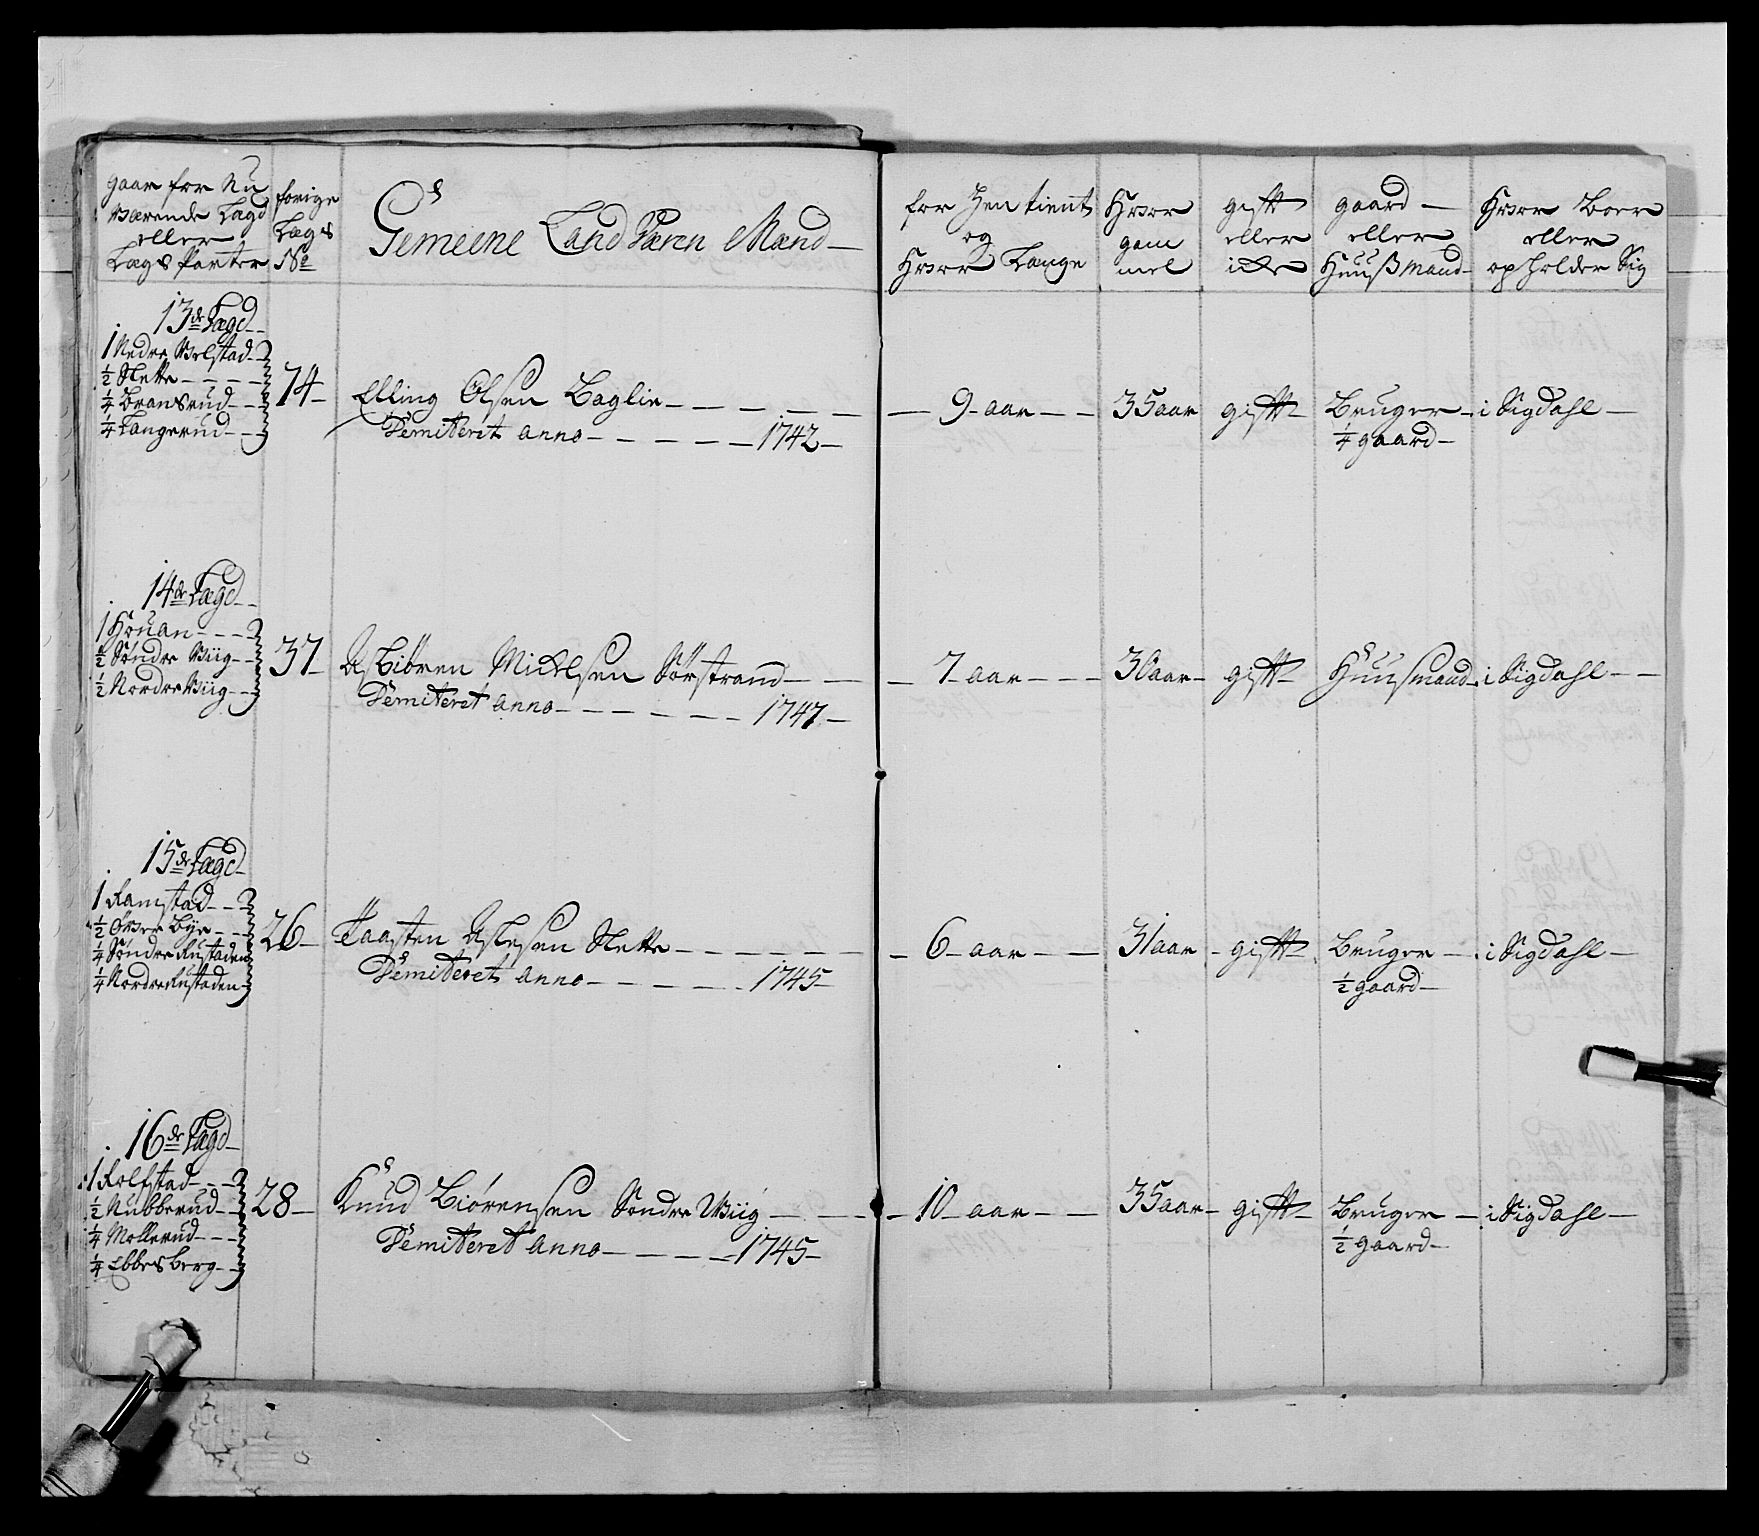 gaar for Nu
værende Lægd
eller
Lægs Parter
forige
Lægs
No
Gemeene Land Værn Mænd
for hen tiennt
og
Hvor Lange
Hvor
gam
mel
gift
eller
icke
gaard
eller
Huusmand
Hvor Boer
eller
opholder Sig
13de Lægd
1 Nedre Velstad
1/2 Slette
1/4 Bransrud
1/4 Langerud
74
Elling Olsen Baglie
Demiteret anno 1742
9 aar
35 aar
gift
Bruger
1/4 gaard
i Sigdahl
14de Lægd
1 Houan
1/2 Søndre Wiig
1/2 Nordre Wiig
37
Asbiören Mickelsen Sörstrand
Demiteret anno 1747
7 aar
30 aar
gift
Huusmand
i Sigdahl
15de Lægd
1 Ramstad
1/2 Øvre Bye
1/4 Søndre Rustaden
1/4 Nordre Rustaden
26
Taasten Aslesen Slette
Demiteret anno 1745
6 aar
31 aar
gift
Bruger
1/2 gaard
i Sigdahl
16de Lægd
1 Rolfstad
1/2 Nubberud
1/4 Mollerud
1/4 Ebbesberg
28
Knud Biörensen Søndre Wiig
Demiteret anno 1745
10 aar
35 aar
gift
Bruger
1/2 gaard
i Sigdahl